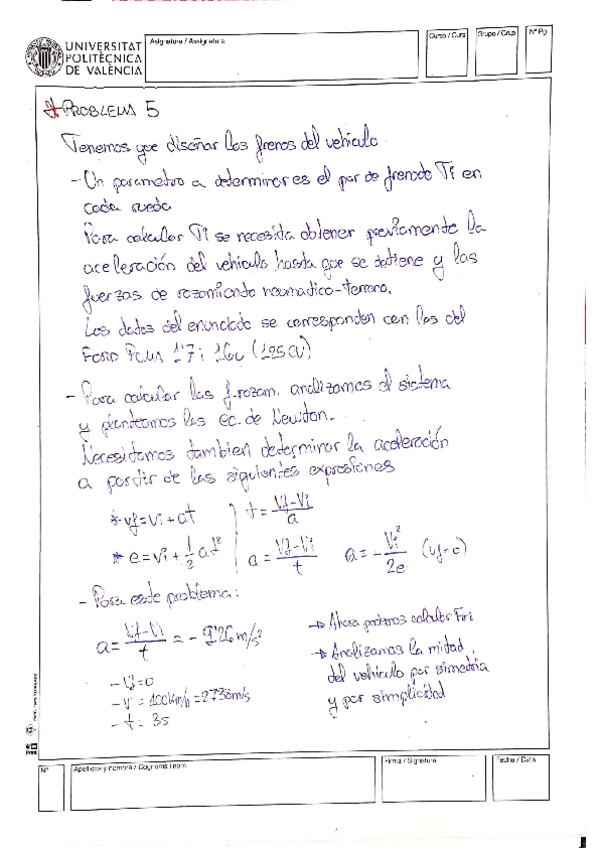 UNIVERSITAT
POLITÈCNICA
DE VALÈNCIA
Asignatura / Assignatura
Curso / Curs
Grupo / Grup
Nº Pg
PROBLEMA 5
Tenemos que diseñar los frenos del vehículo
- Un parametro a determinar es el par de frenado Ti en
cada rueda
Para calcular Ti se necesita obtener previamente la
aceleración del vehículo hasta que se detiene y las
fuerzas de rozamiento neumatico-terreno.
Los datos del enunciado se corresponden con los del
FORD PUMA 1'7i 16v (125CV)
- Para calcular las f.rozam. analizamos el sistema
y planteamos las ec. de Newton.
Necesitamos tambien determinar la aceleración
a partir de las siguientes expresiones
* vf = vi + at
t = (vf - vi)/a
* e = vi + 1/2 at²
a = (vf - vi)/t
a = - vi²/2e (vf = 0)
- Para este problema:
a = (vf - vi)/t = - 9'26 m/s²
- vf = 0
- vi = 100km/h = 27'78m/s
- t = 3s
→ Ahora podemos calcular Fri
→ Analizamos la mitad
del vehiculo por simetria
y por simplicidad
Nº
Apellidos y nombre / Cognoms i nom
Firma / Signatura
Fecha / Data